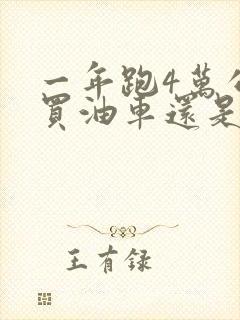 一年跑4萬公
買油車還是
王有録